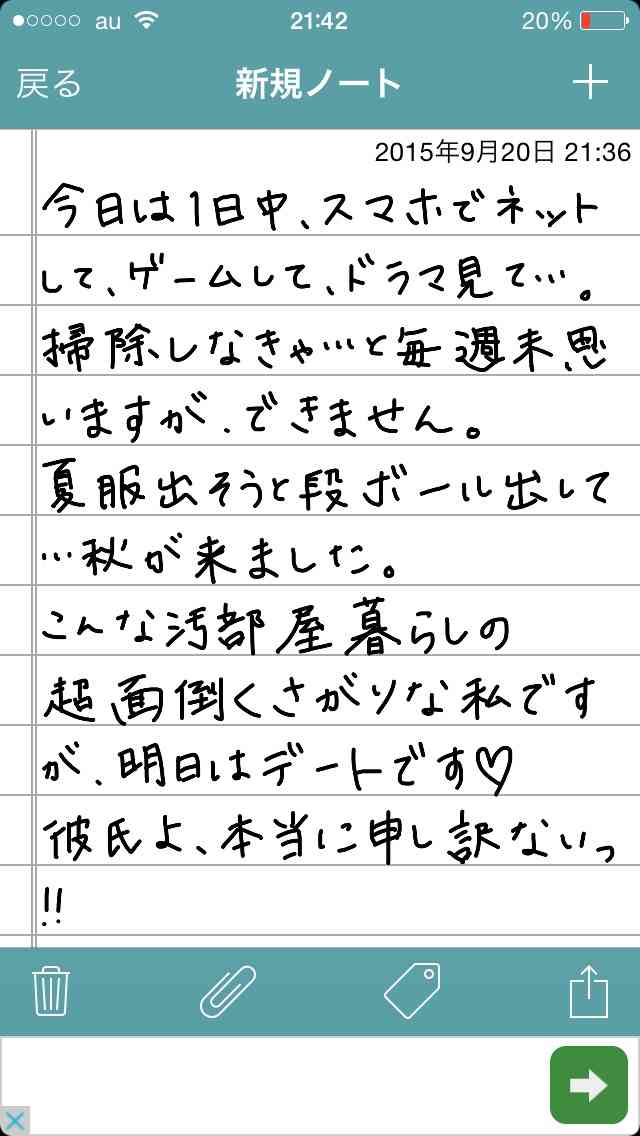 au 21:42 20%
戻る 新規ノート
2015年9月20日 21:36
今日は1日中、スマホでネット
して、ゲームして、ドラマ見て…。
掃除しなきゃ…と毎週末、思
いますが、できません。
夏服出そうと段ボール出して
…秋が来ました。
こんな汚部屋暮らしの
超面倒くさがりな私です
が、明日はデートです♡
彼氏よ、本当に申し訳ないっ
!!